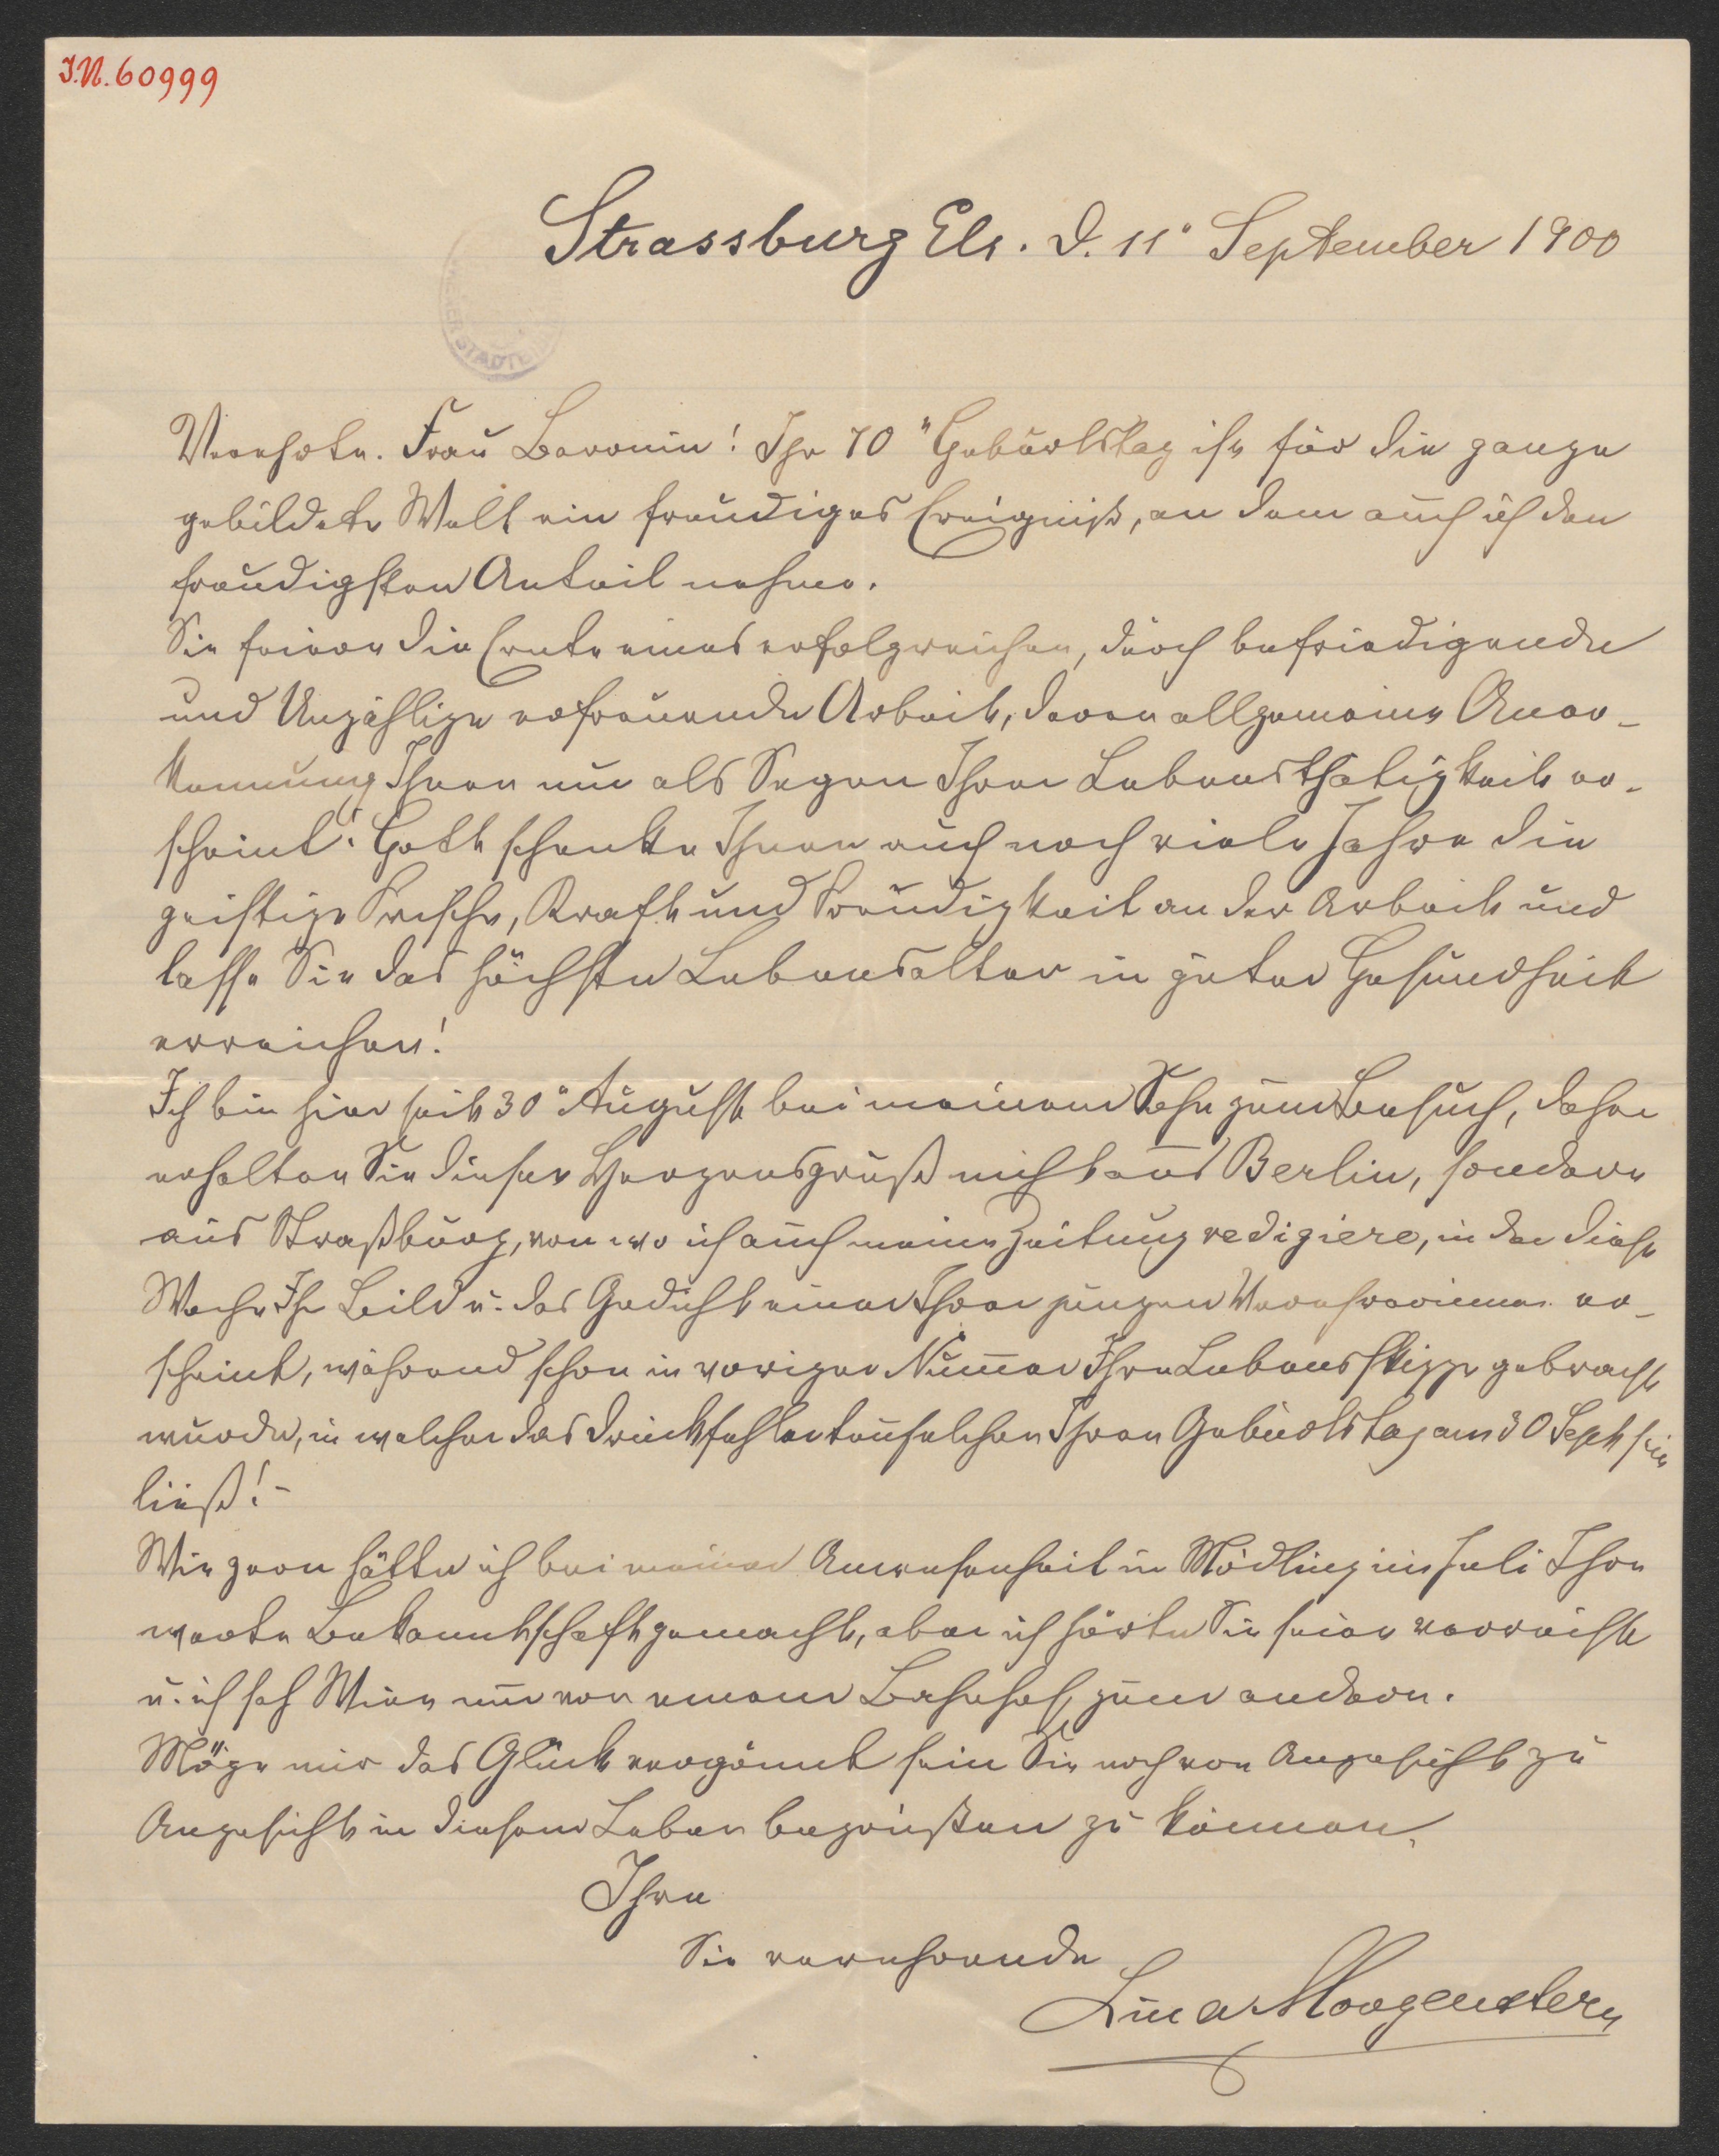 I.N. 60999
Strassburg Els. d. 11" September 1900
Verehrte. Frau Baronin! Ihr 70" Geburtstag ist für die ganze
gebildete Welt ein freudiges Ereigniß, an dem auch ich den
freudigsten Anteil nehme.
Sie feiern die Ernte eines erfolgreichen, durch befriedigende
und Unzählige erfreuende Arbeit, deren allgemeine Aner-
kennung Ihnen nun als Segen Ihrer Lebensthätigkeit er-
scheint! Gott schenke Ihnen auch noch viele Jahre die
geistige Frische, Kraft und Freudigkeit an der Arbeit und
lasse Sie das höchste Lebensalter in guter Gesundheit
erreichen!
Ich bin hier seit 30" August bei meinem Sohn zum Besuch, daher
erhalten Sie diesen Herzensgruß nicht aus Berlin, sondern
aus Straßburg, von wo ich auch meine Zeitung redigiere, in der diese
Woche Ihr Bild u. das Gedicht einer Ihrer jungen Verehrerinnen er-
scheint, während schon in voriger Numer Ihre Lebensskizze gebracht
wurde, in welcher das Druckfehlerteufelchen Ihren Geburtstag am 30 Sept sein
ließ! -
Wie gern hätte ich bei meiner Anwesenheit in Mödling im Juli Ihre
werte Bekanntschaft gemacht, aber ich hörte Sie seien verreist
u. ich sah Wien nur von einem Bahnhof zum andern.
Möge mir das Glück vergönnt sein Sie noch von Angesicht zu
Angesicht in diesem Leben begrüßen zu können.
Ihre
Sie verehrende
Lina Morgenstern